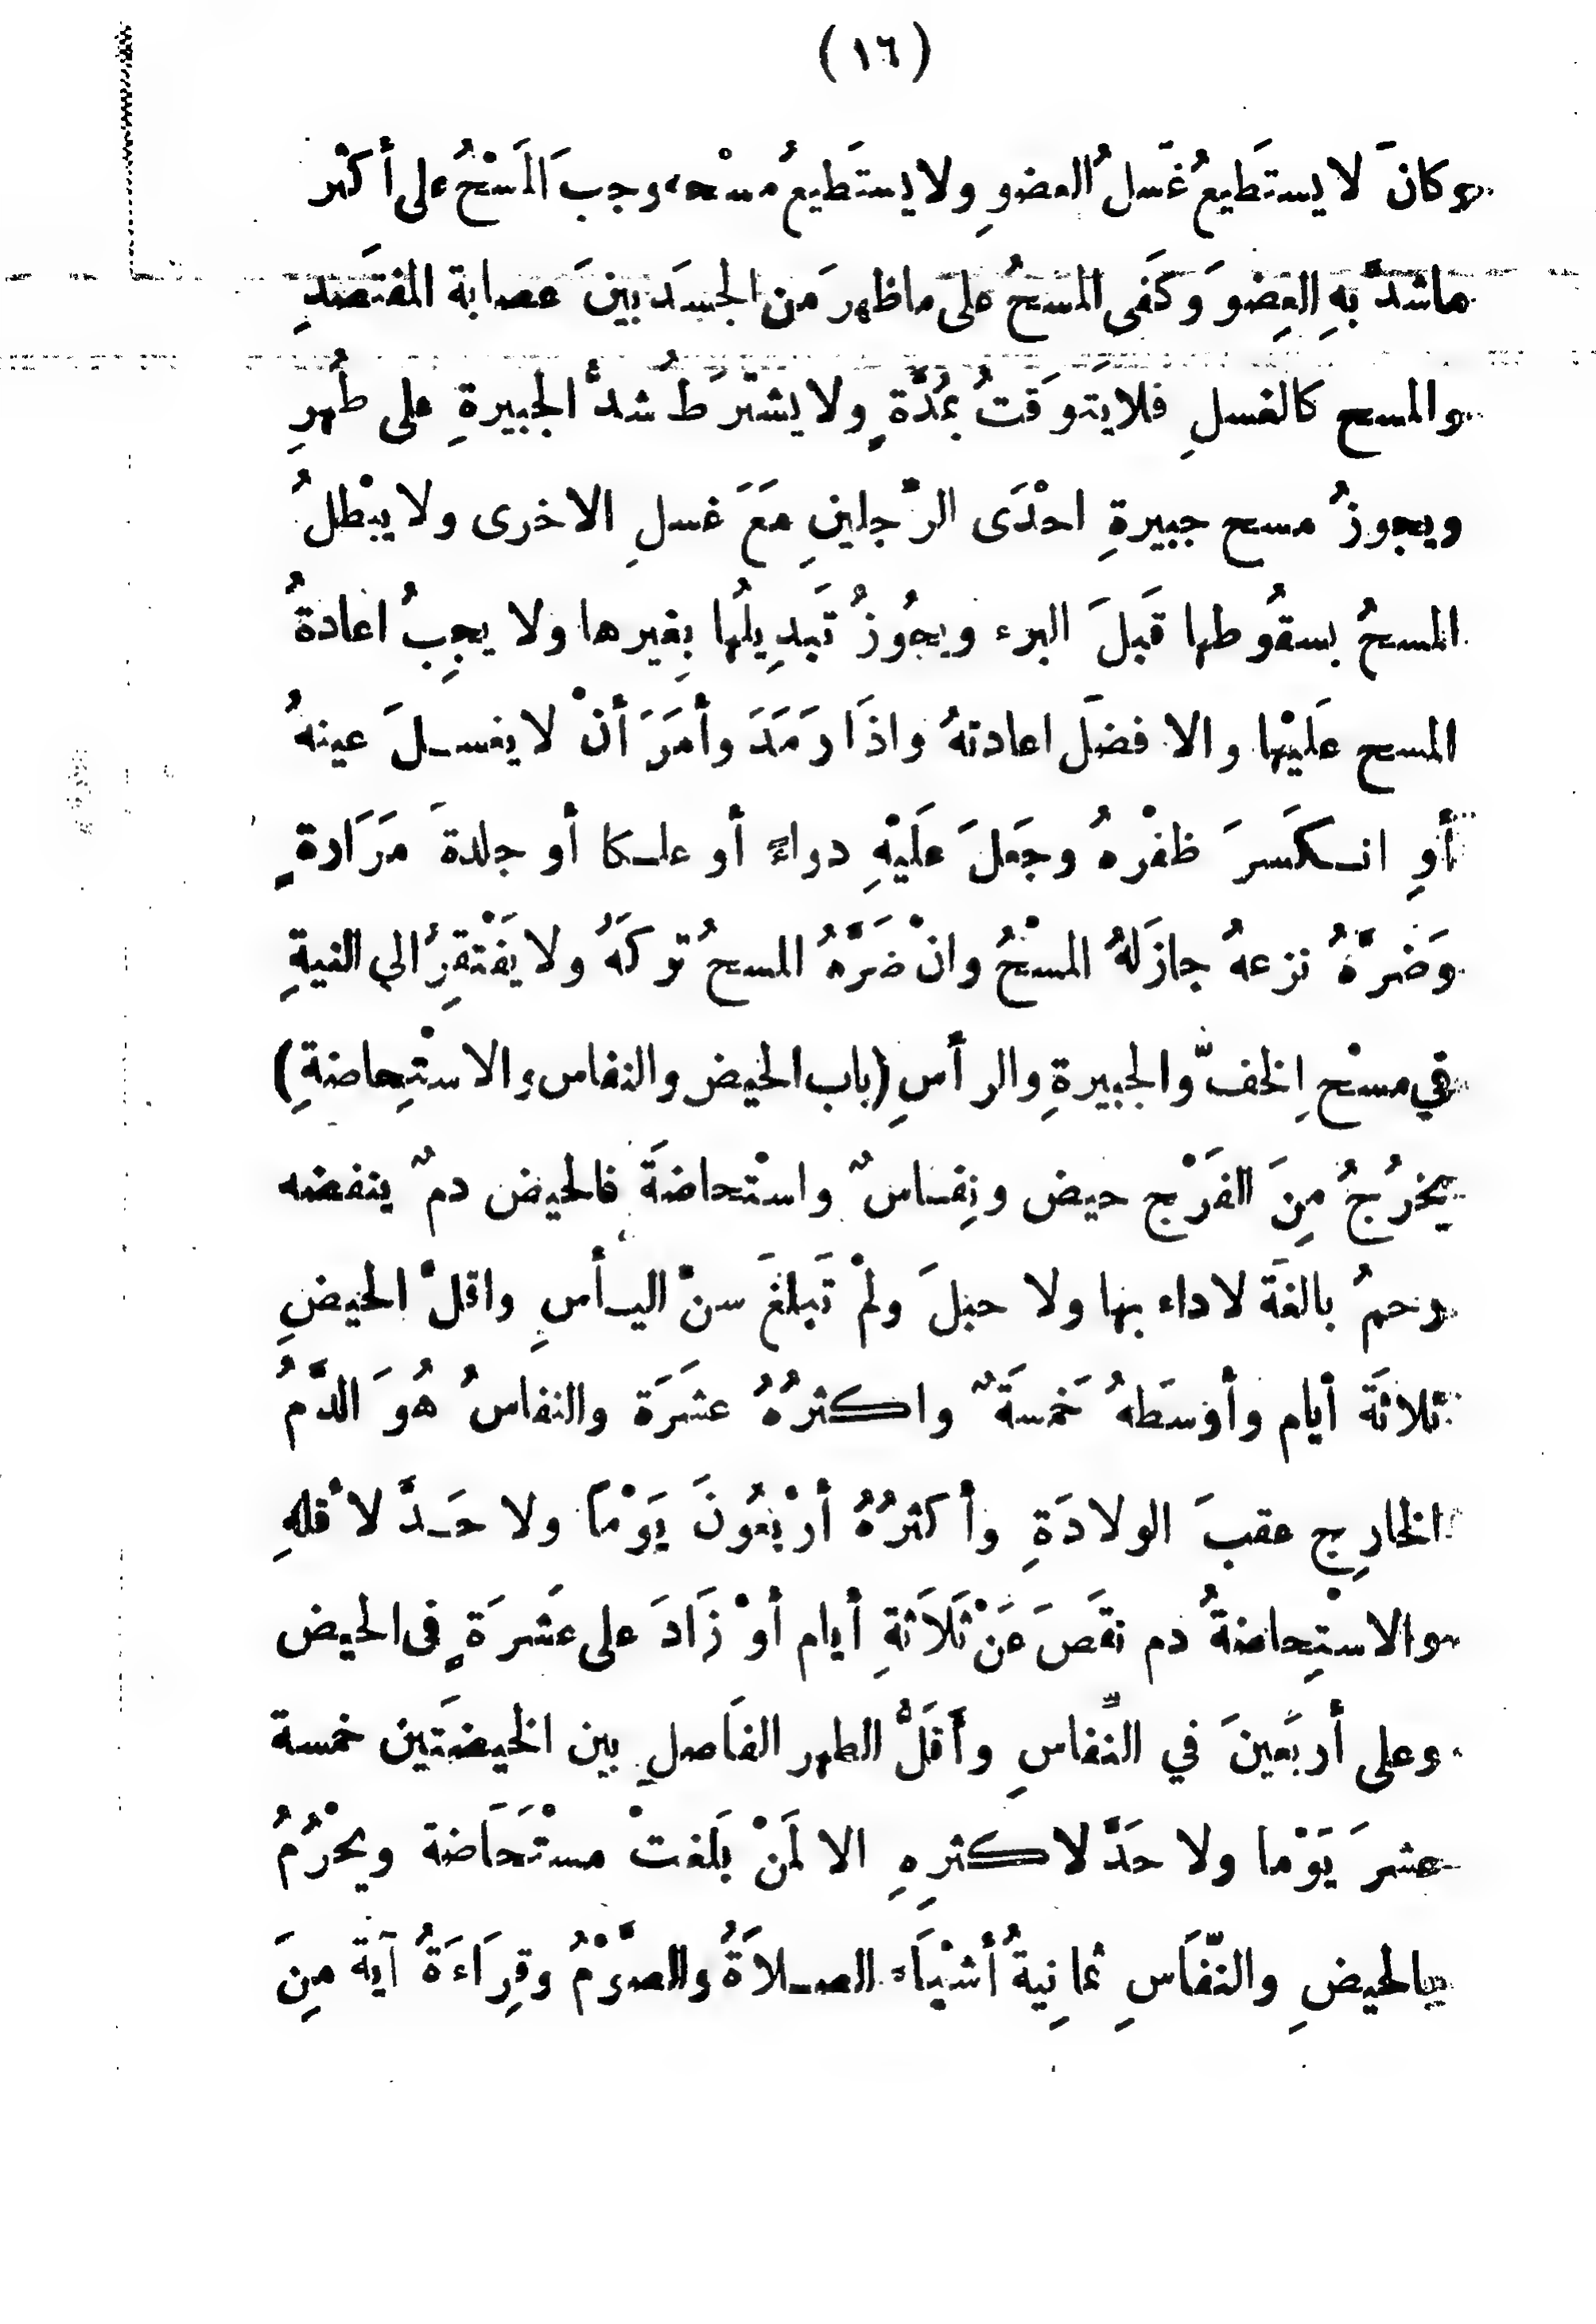 (١٦)
وكانَ لا يستَطيعُ غَسلُ العضوِ ولا يستَطيعُ مسْحه وجبَ المَسْحُ على أكثر
ماشدَّ بهِ العِضوَ وكَفى المسحُ على ماظهرَ مَن الجسدَ بينَ عصابة المفتَصدِ
والمسح كالغسلِ فلا يَتوَقتُ بمُدَّةٍ ولا يشترَطُ شدُّ الجبيرةِ على طُهرٍ
ويجوزُ مسح جبيرةِ احْدَى الرّجلينِ مَعَ غسلِ الاخرى ولا يبْطلُ
المسحُ بسقُوطها قَبلَ البرء ويجُوزُ تَبدِيلُها بِغيرها ولا يجِبُ اعادةُ
المسح عَليْها والافضَل اعادتهُ واذَا رَمَدَ وأمَرَ أنْ لا يغسـلَ عينهُ
أوِ انـكَسرَ ظفْرهُ وجَعلَ عَليْهِ دواءً أو علـكا أو جلدةَ مَرَارةٍ
وَضرَّهُ نزعهُ جازَلهُ المسْحُ وانْ ضَرَّهُ المسحُ تركَهُ ولا يَفْتقِرُ الي النيةِ
في مسْحِ الخفّ والجبيرةِ والرأسِ (باب الحيض والنفاس والاستِحاضةِ)
يخرُجُ مِنَ الفَرْج حيض ونِفـاسٌ واسْتحاضةَ فالحيض دمٌ ينفضه
رحمُ بالغَة لاداء بها ولا حبلَ ولمْ تَبلغَ سنْ اليـأسِ واقلْ الحيضِ
ثلاثَة أيام وأوْسَطهُ خمسَةٌ واكثرُهُ عشَرَة والنفاسُ هُوَ الدَّمُ
الخارِج عقبَ الولادَةِ وأكثرُهُ أرْبعُونَ يَوْماً ولا حَـدَّ لأقلهِ
والاستِحاضةُ دم نقصَ عَنْ ثَلاَثةِ أيام أوْ زَادَ على عَشرَةٍ فى الحيض
وعلى أربَعينَ في النّفاسِ وأَقَلُّ الطهر الفَاصلِ بين الحيضَتين خمسة
عشرَ يَوْما ولا حَدَّ لاكثرِهِ الا لمَنْ بَلغتْ مسْتَحَاضة ويحْرُمُ
بالحيضِ والنّفَاسِ ثمانِيةُ أشْيَاَء الصـلاَةُ والصوْمُ وقِرَاءَةُ آية مِنَ